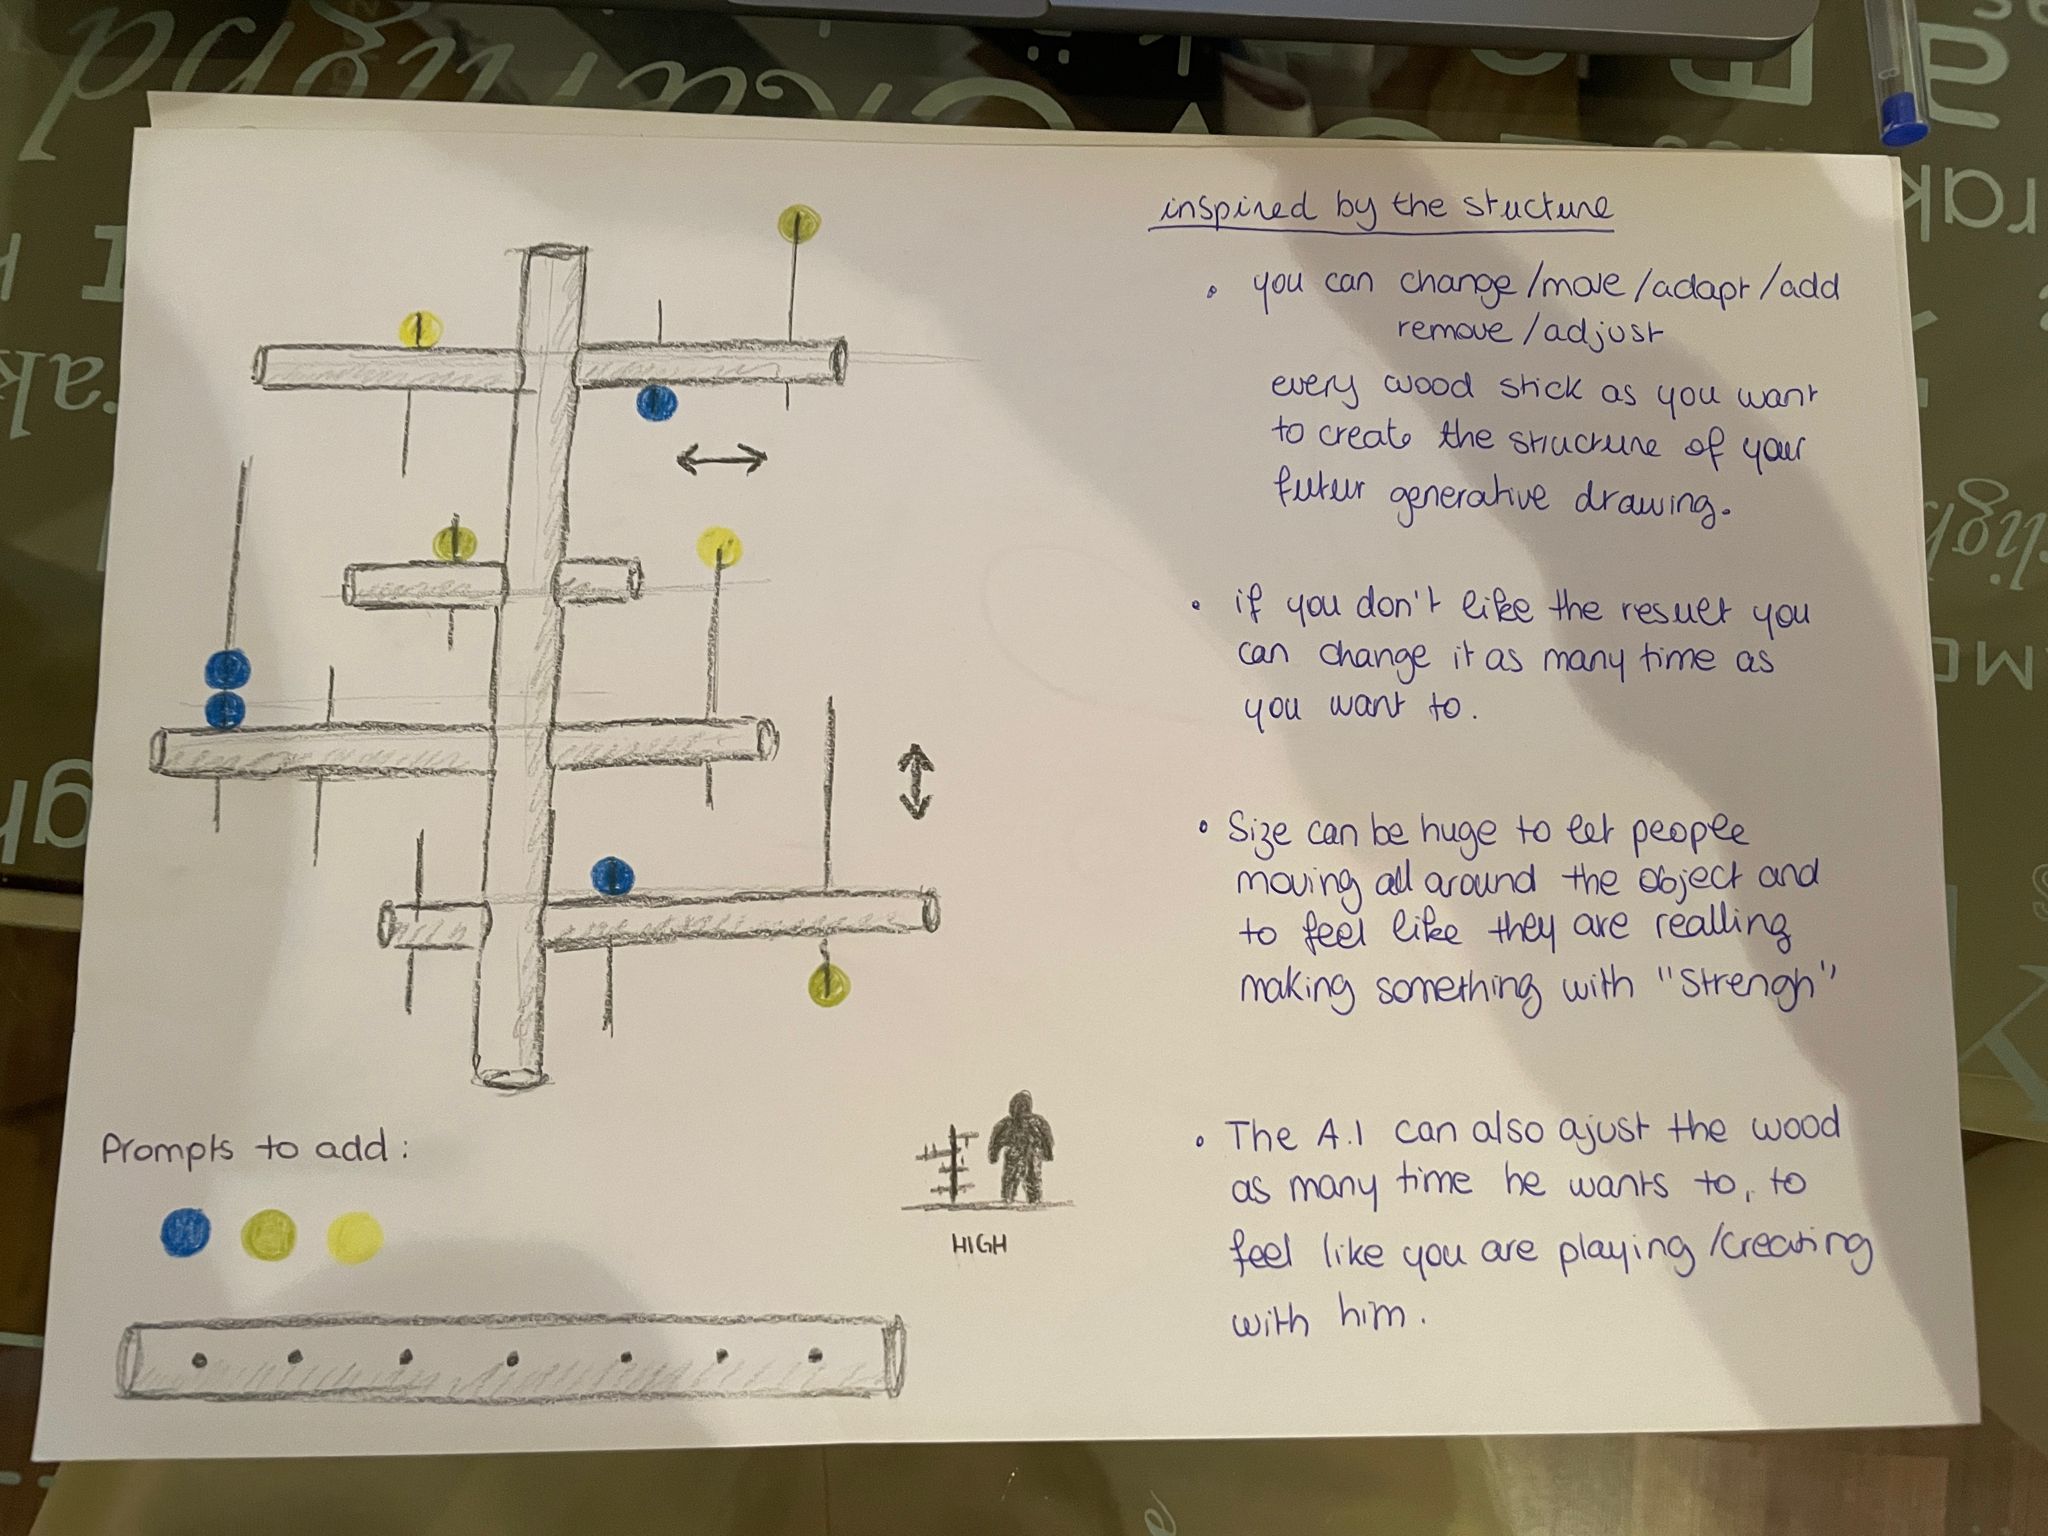 inspired by the stucture
• you can change/move/adapt/add
remove/adjust
every wood stick as you want
to create the structure of your
futur generative drawing.
• if you don't like the result you
can change it as many time as
you want to.
• Size can be huge to let people
moving all around the object and
to feel like they are realling
making something with "Strengh"
• The A.I can also ajust the wood
as many time he wants to, to
feel like you are playing/creating
with him.
Prompts to add:
HIGH